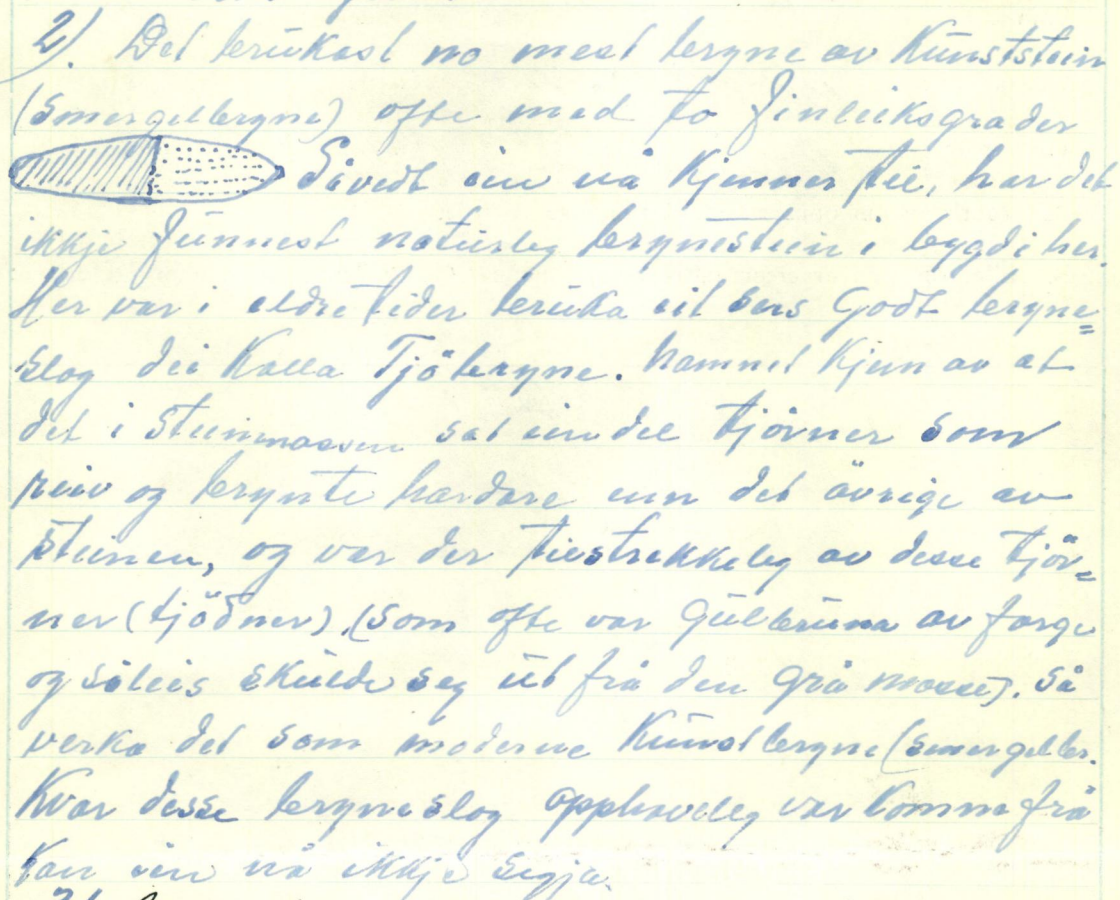 2). Det brukast no mest bryne av Kunststein
(Smergelbryne) ofte med to finleiksgrader
Såvedt ein nå kjenner til, har det
ikkje funnest naturleg brynestein i bygdi her.
Her var i eldre tider bruka eit sers godt bryne=
slag dei kalla Tjöbryne. Namnet kjem av at
det i steinmassen sat ein del tjörner som
reiv og brynte hardare enn det övrige av
steinen, og var der tilstrekkeleg av desse tjör=
ner (tjödner), (som ofte var gulbruna av farge
og såleis skulde seg ut frå den grå masse). Så
verka det som moderne Kunstbryne (smergelbr.
Kvar desse bryneslag opphaveleg var komne frå
kan ein nå ikkje segja.